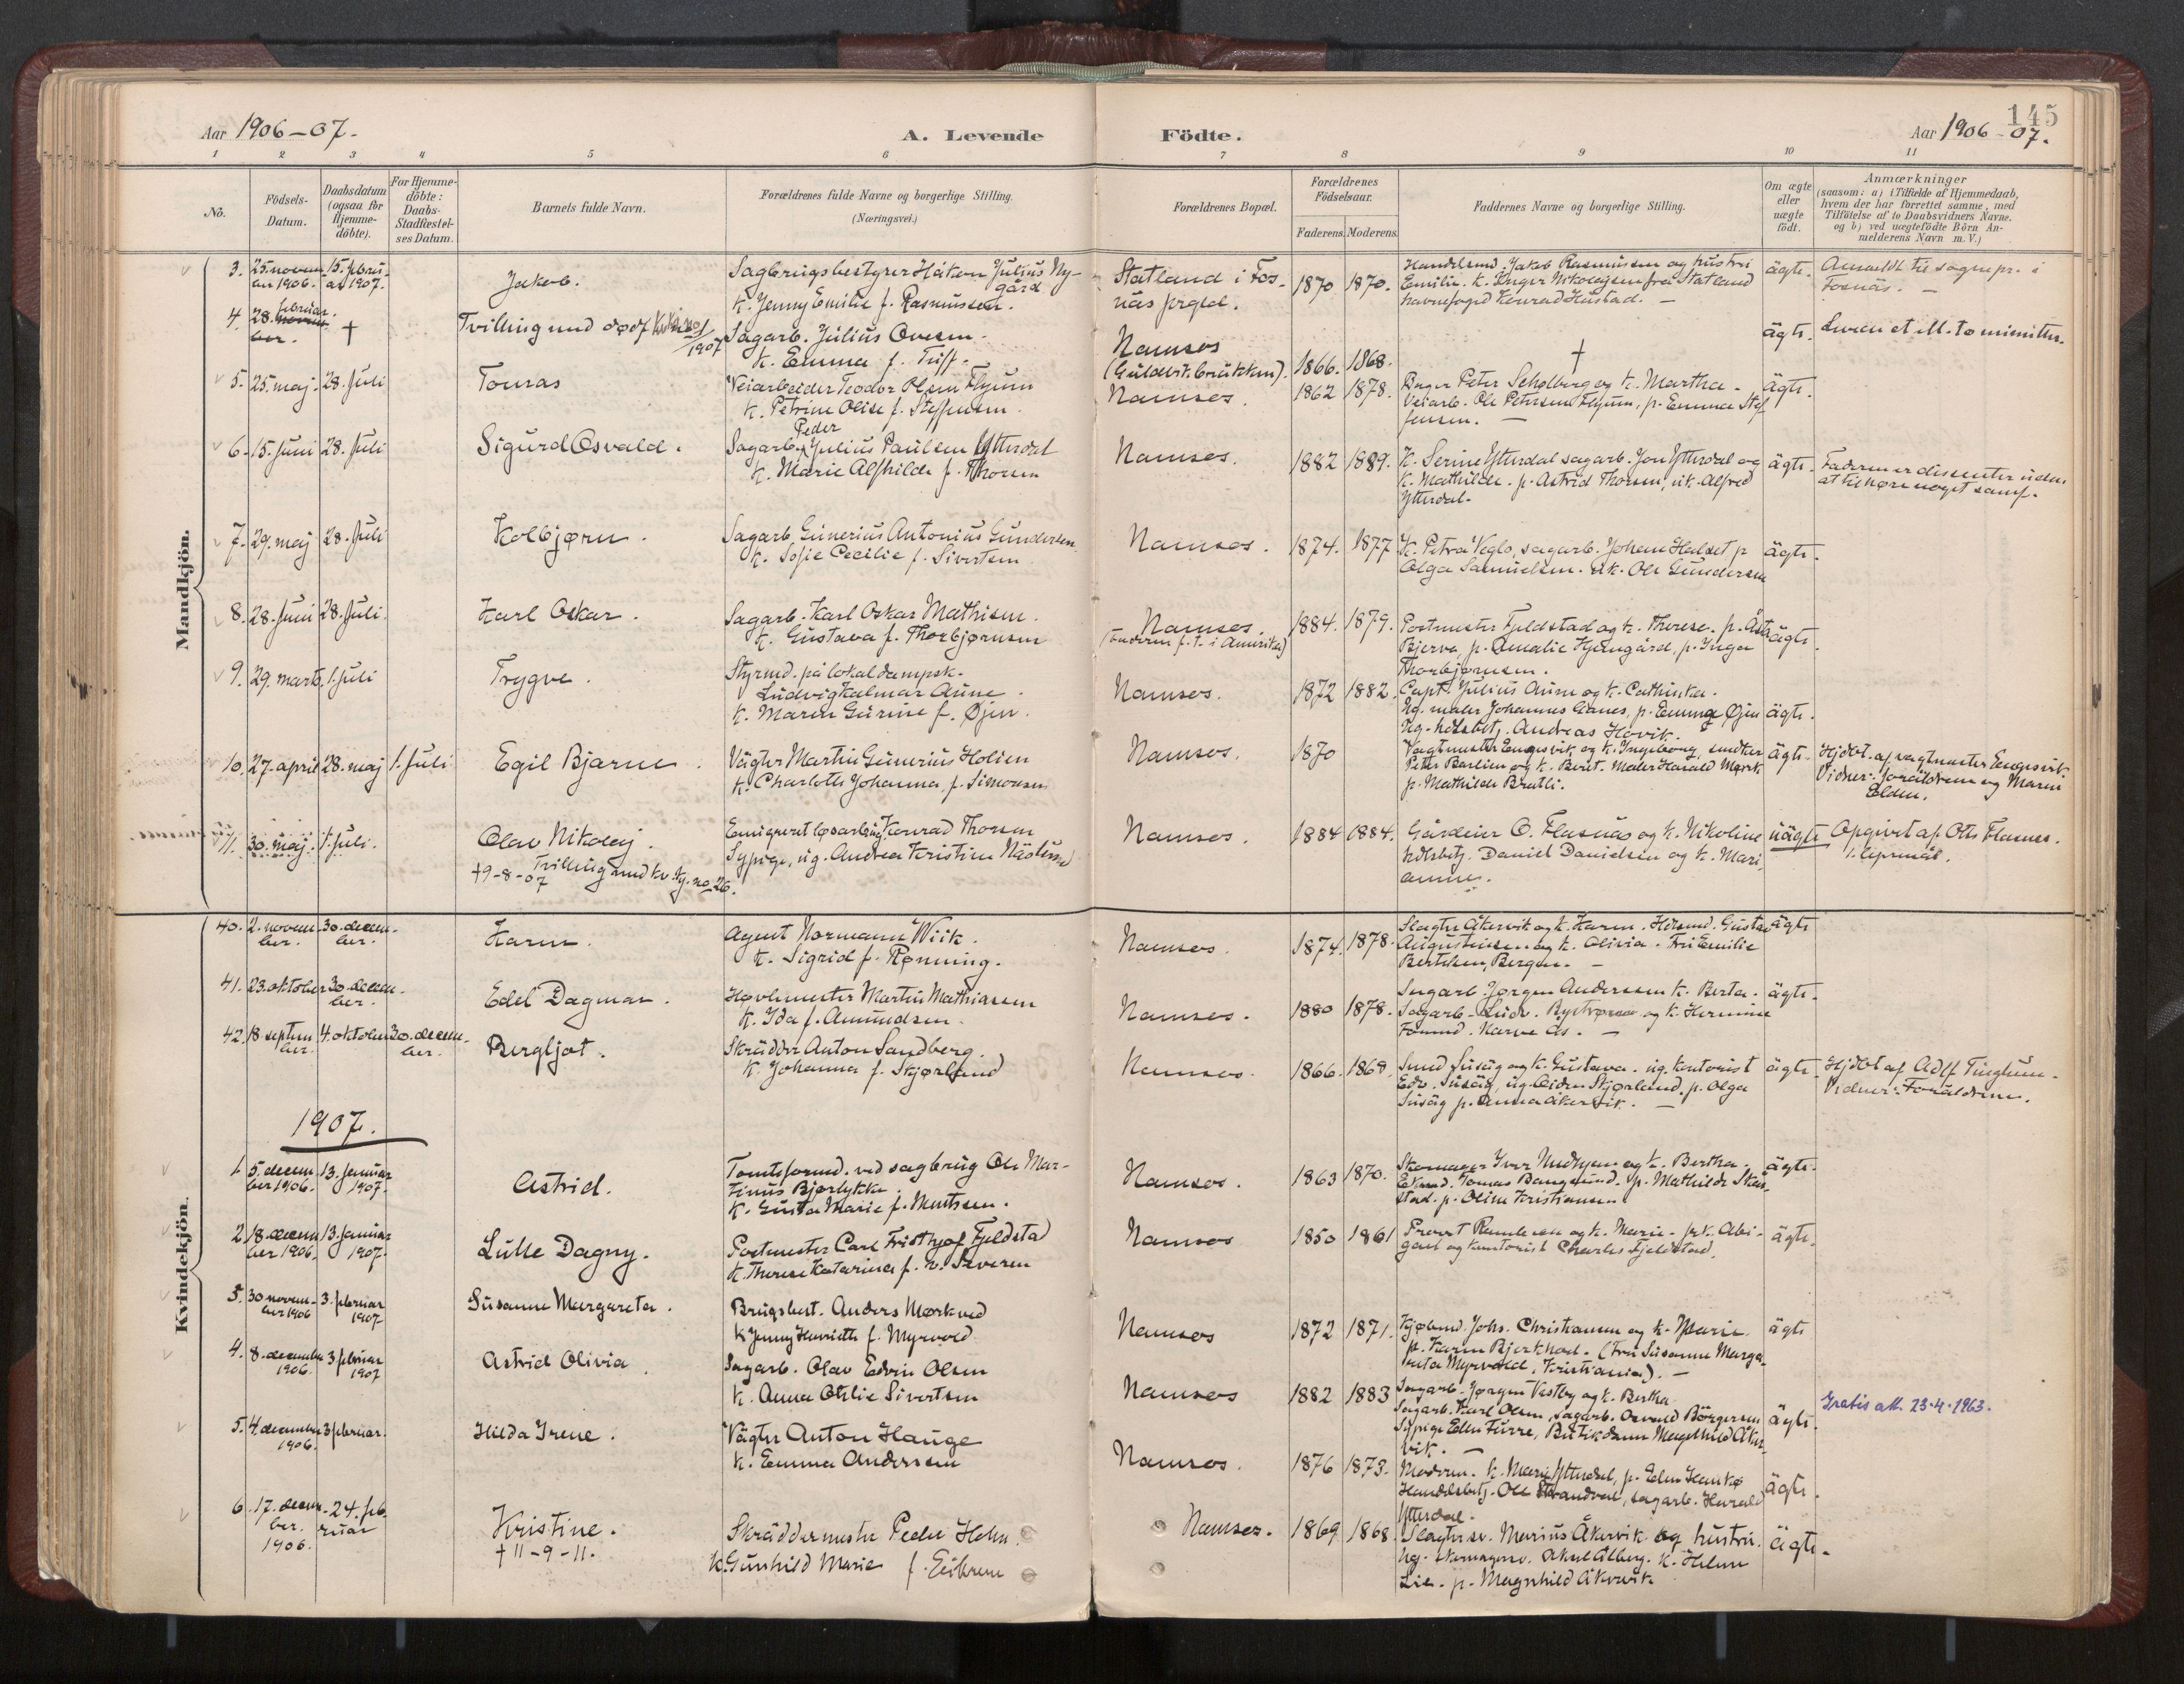 Aar 1906-07.
A. Levende
Födte.
145
Aar 1906-07.
1 2 3 4 5 6 7 8 9 10 11
No.
Födsels-
Datum.
Daabsdatum
(ogsaa for
Hjemme-
döbte).
For Hjemme-
döbte:
Daabs-
Stadfæstel-
ses Datum.
Barnets fulde Navn.
Forældrenes fulde Navne og borgerlige Stilling.
(Næringsvei.)
Forældrenes Bopæl.
Forældrenes
Födselsaar.
Faderens. Moderens.
Faddernes Navne og borgerlige Stilling.
Om ægte
eller
uægte
födt.
Anmærkninger
(saasom: a) i Tilfælde af Hjemmedaab,
hvem der har forrettet samme, med
Tilföielse af to Daabsvidners Navne.
og b) ved uægtefödte Börn An-
melderens Navn m. V.)
Mandkjön.
3. 25. novem- 15. febru-
ber 1906. ar 1907.
Jakob.
Sagbrugsbestyrer Håkon Julius Ny-
gård
k. Jenny Emilie f. Rasmussen.
Statland i Fos-
näs prgld.
1870 1870.
Handelsmd. Jakob Rasmussen og hustru
Emilie. k. Inger Nikolajsen fra Statland
havnefoged Konrad Hustad. -
ägte. Anmeldt til sognepr. i
Fosnäs. -
4. 28. februar.
†
Tvilling med dødf.
1907
Sagarb. Julius Ovesen.
k. Emma f.
Namsos
1866. 1868.
†
ägte.
5. 25. maj. 28. Juli
Tomas
Veiarbeider Teodor Olsen Flyum
k. Petrine Olise f. Steffensen.
Namsos.
1862 1878.
Bager Peter Scholberg og k. Martha.
Veiarb. Ole Petersen Flyum, p. Emma Stef
fensen. -
ägte.
6. 15. Juni 28. Juli
Sigurd Osvald.
Peder
Sagarb. Julius Paulsen Ytterdal
k. Marie Alfhilde f. Thorsen
Namsos.
1882 1889.
k. Serine Ytterdal sagarb. Jon Ytterdal og
k. Mathilde. p. Astrid Thorsen, uk. Alfred
Ytterdal.
ägte. Faderen er dissenter uden
at tilhøre noget samf.
7. 29. maj 28. Juli
Kolbjørn.
Sagarb. Gunerius Antonius Gundersen
k. Sofie Cecilie f. Sivertsen
Namsos.
1874. 1877
k. Petra Veglo, sagarb. Johan Halset p
Olga Samuelsen. uk. Ole Gundersen
ägte.
8. 28. Juni 28. Juli.
Karl Oskar.
Sagarb. Karl Oskar Mathisen.
k. Gustava f. Thorbjørnsen
Namsos.
(faderen f. t. i Amerika)
1884. 1879.
Postmester Fjeldstad og k. Therese. p. Åsta
Bjerva, p. Amalie Hjemgård, p. Inga
Thorbjørnsen.
ägte.
9. 29. marts 1. Juli
Trygve.
Styrmd. på lokaldampsk.
Ludvig Kalmar Aune.
k. Maren Gurine f. Øjen.
Namsos.
1872 1882.
Capt. Julius Aune og k. Cathinka.
Ug. maler Johannes Ganes, p. Emma Øjen
Ug. hdlsbetj. Andreas Hovik.
ägte.
10. 27. april 28. maj 1. Juli
Egil Bjarne.
Vägter Martin Gunerius Holien
k. Charlotte Johanna f. Simonsen
Namsos.
1870
Vagtmester Engesvik og k. Ingeborg, smed
Peter Barlien og k. Beret. Maler Harald Mørk
p. Mathilde Bratli.
ägte. Hjdbt. af vagtmester Engesvik.
Vidner: forældrene og Maren
Elden.
11. 30. maj. 1. Juli.
Olav Nikolaj.
†9-8-07 Tvilling med kv. kj. no 26.
Emigreret løsarbeid. Konrad Thorsen
Sypige, ug. Andrea Kristine Näslund
Namsos.
1884 1884.
Gårdeier O. Flasnäs og k. Nikoline
hdlsbetj. Daniel Danielsen og k. Mari
anne.
uägte Opgivet af Otto Flasnes.
1. lejermål.
Kvindekjön.
40. 2. novem- 30. decem-
ber. ber.
Karen.
Agent Normann Wiik.
k. Sigrid f. Rønning.
Namsos.
1874. 1878.
Slagter Åkervik og k. Karen. Gustav
Augustinsen og k. Olivia. Frk Emilie
Bertelsen, Bergen. -
ägte
41. 23. oktober 30. decem-
ber.
Edel Dagmar.
Høvlemester Martin Mathiassen
k. Ida f. Amundsen.
Namsos.
1880 1878.
Sagarb. Jørgen Anderssen k. Berta.
Sagarb. Ludv. Bystrøm og k. Hermine
Formd. Narve As. -
ägte.
42. 18 septem 4. oktober 30. decem-
ber. ber.
Bergljot.
Skrädder Anton Sandberg.
k. Johanna f. Skjørland
Namsos.
1866. 1868.
Smed Susäg og k. Gustava. ug. kontorist
Edv. Susäg, ug. Skjørland. p. Olga
Susäg p. Anna Åkervik. -
ägte. Hjdbt af Adlf Tinghun.
Vidner: Forældrene.
1907.
1. 5. decem 13. januar
ber 1906. 1907.
Astrid.
Tomteformd. ved sagbrug Ole Mar-
tinus Bjørlykke.
k. Gusta Marie f. Mentzsen.
Namsos.
1863 1870.
Skomager Iver Nedhjem og k. Bertha.
Tomas Bangsund. p. Mathilde Skar
stad. p. Oline Kristiansen
ägte.
2. 18. decem 13. januar
ber 1906. 1907.
Lulle Dagny.
Postmester Carl Fristhjof Fjeldstad
k. Therese Katarina f. v. Severen
Namsos
1850 1861
Provst og k. Marie. frk. Abi-
gael og kontorist Charles Fjeldstad.
ägte.
3. 30 novem- 3. februar
ber 1906 1907
Susanne Margareta.
Brugsbest. Anders Mørkved
k Jenny Henriette f. Myrvold
Namsos
1872 1871.
Kjøbmd. Johs. Christiansen og k. Marie.
p. Karen Bjerknad. (Fru Susanne Marga-
reta Myrvold, Kristiania). -
ägte
4. 8. decembr 3 februar
1906. 1907
Astrid Olivia.
Sagarb. Olav Edvin Olsen
k. Anna Otelie Sivertsen
Namsos
1882 1883
Sagarb. Jørgen Vestby og k. Bertha
Sagarb. Karl Olsen, sagarb. Osvald Börgersen
Sypige Ellen Furre, Butikdame Magnhild Åker-
vik. -
ägte.
Gratis att. 23.4.1963.
5. 4. december 3 februar.
1906.
Hilda Irene.
Vägter Anton Hauge
k. Emma Anderssen
Namsos.
1876 1873.
Moderen. k. Marie Ytterdal, p. Edin
Handelsbetj. Ole Strandvol, sagarb. Harald
Ytterdal.
ägte.
6. 17. decem- 24. feb-
ber. ruar
1906.
Kristine.
† 11-9-11.
Skräddermester Peder Holm
k. Gunhild Marie f. Eibrem
Namsos.
1869 1868
Slagtersv. Marius Åkervik og hustru.
Ug. skomagersv. Aksel Ålberg. k. Helene
Lie. p. Magnhild Åkervik.
ägte.